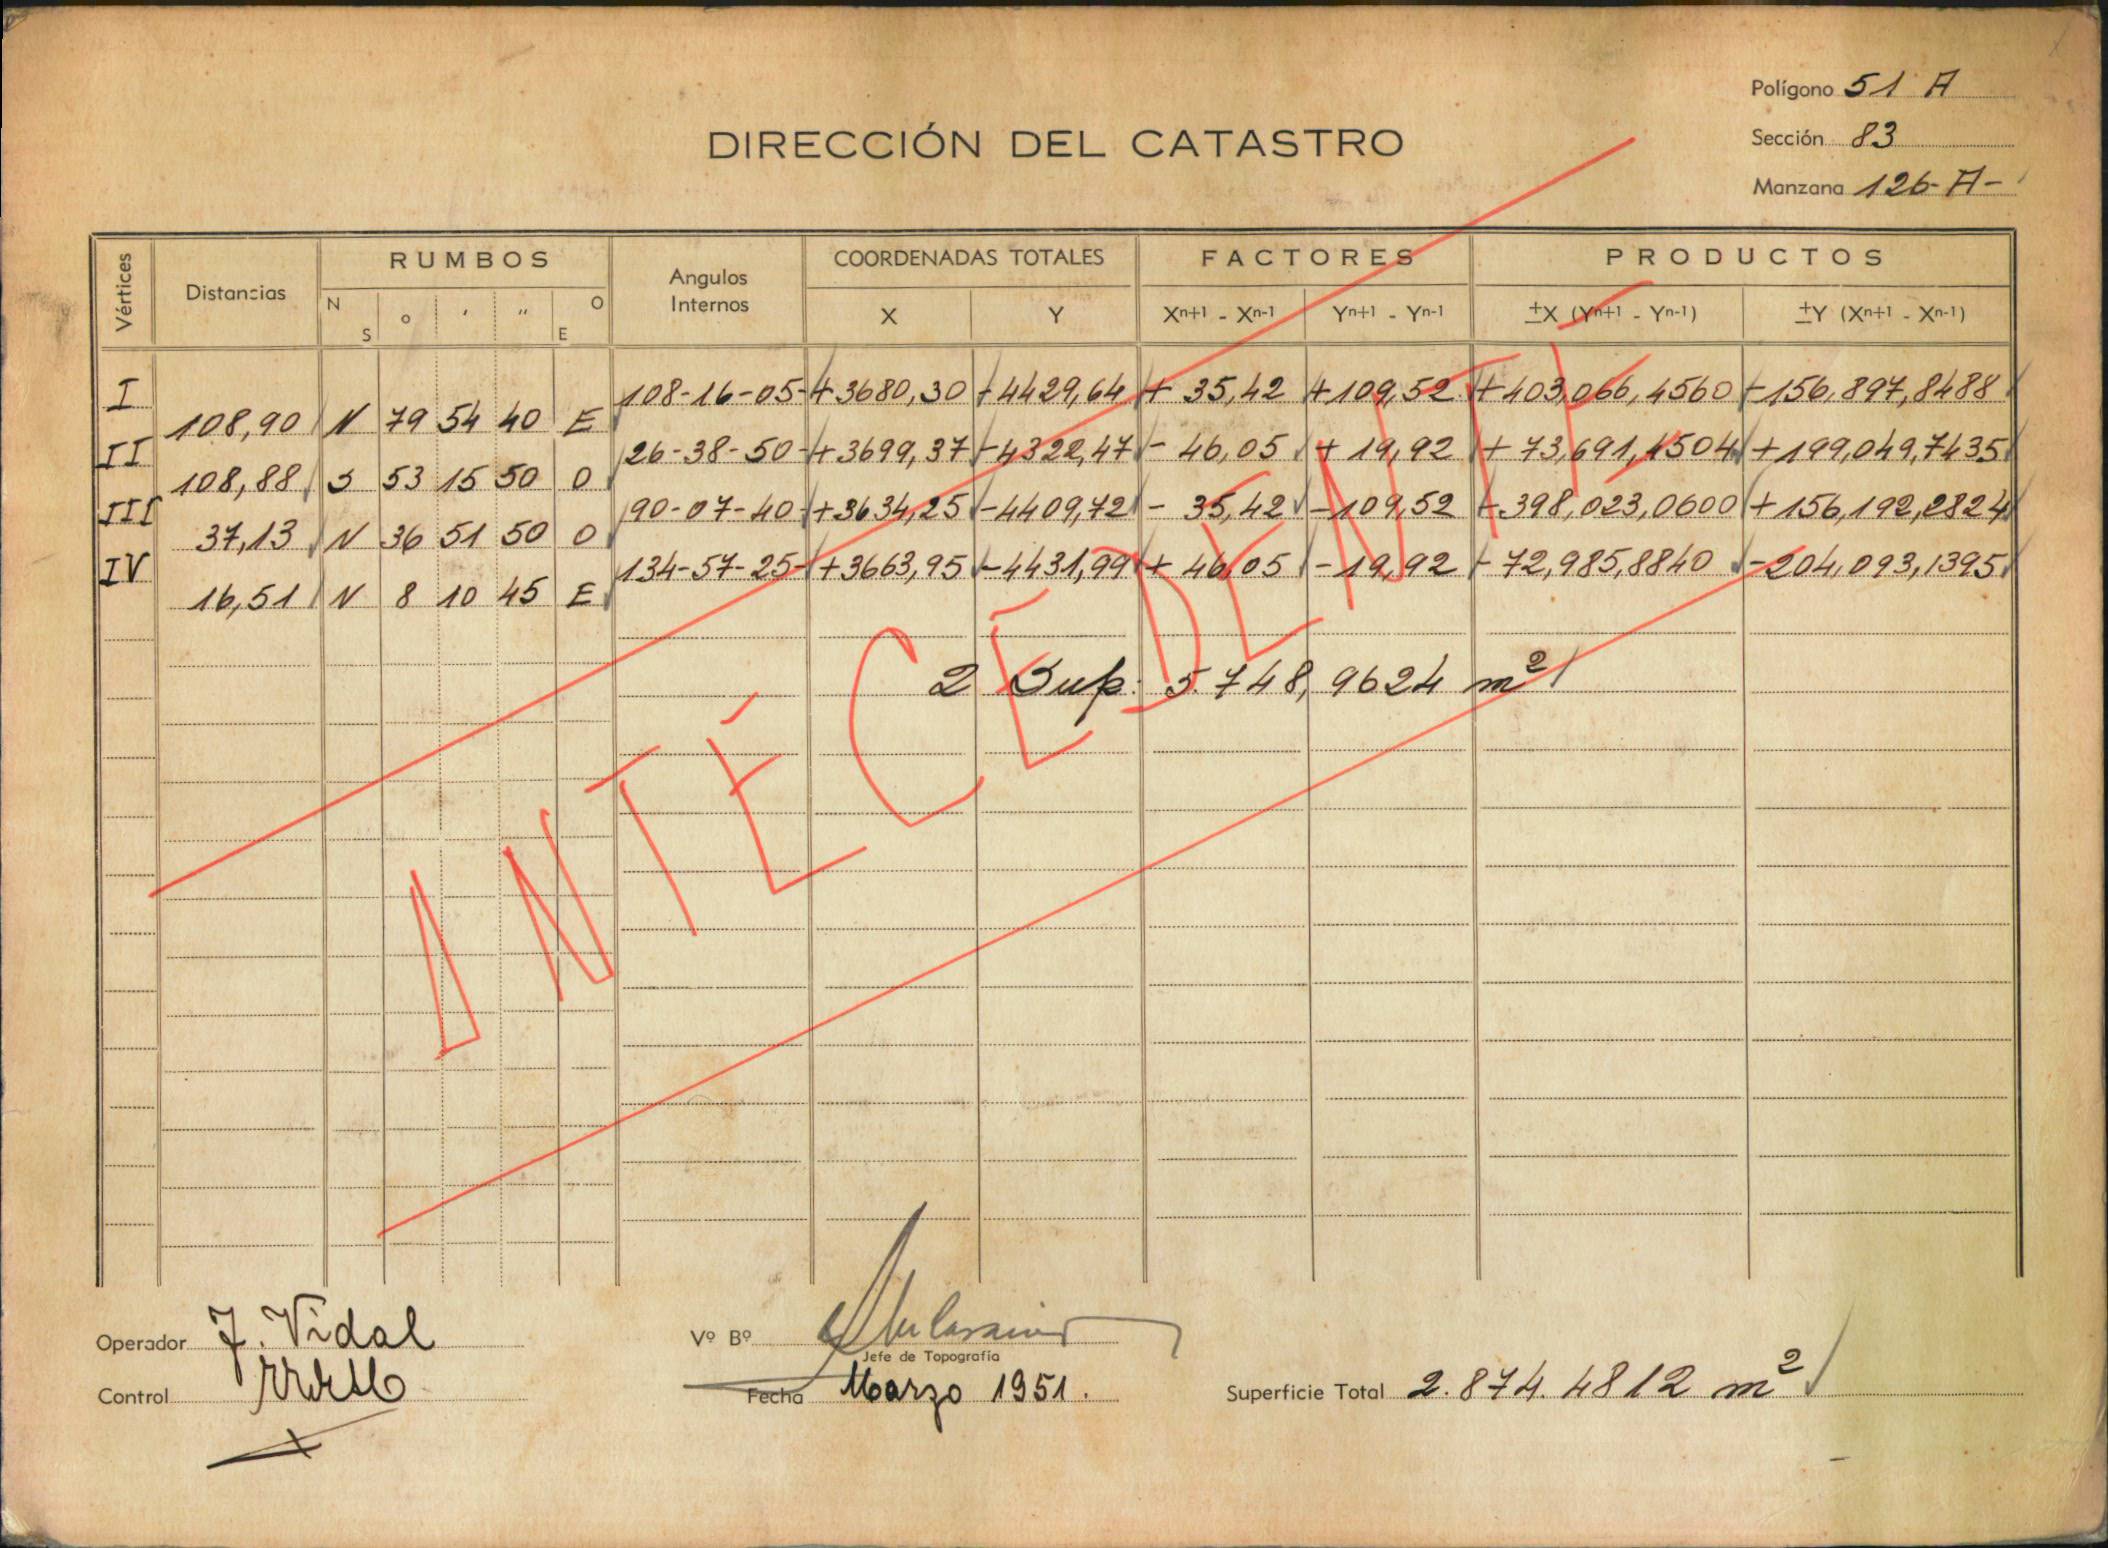 Polígono 51 A
DIRECCIÓN DEL CATASTRO
Sección 83
Manzana 126-A-
Vértices Distancias RUMBOS Angulos Internos COORDENADAS TOTALES FACTORES PRODUCTOS
N S ° ' " E O X Y Xn+1 - Xn-1 Yn+1 - Yn-1 ±X (Yn+1 - Yn-1) ±Y (Xn+1 - Xn-1)
I 108-16-05- +3680,30 -4429,64 + 35,42 +109,52 +403,066,4560 -156,897,8488
108,90 N 79 54 40 E
II 26-38-50- +3699,37 -4322,47 - 46,05 + 19,92 + 73,691,4504 +199,049,7435
108,88 S 53 15 50 O
III 90-07-40- +3634,25 -4409,72 - 35,42 -109,52 -398,023,0600 +156,192,2824
37,13 N 36 51 50 O
IV 134-57-25- +3663,95 -4431,99 + 46,05 -19,92 - 72,985,8840 -204,093,1395
16,51 N 8 10 45 E
2 Sup: 5.748,9624 m²
ANTECEDENTE
Operador J. Vidal
Vº Bº
Jefe de Topografía
Control
Fecha Marzo 1951.
Superficie Total 2.874.4812 m²